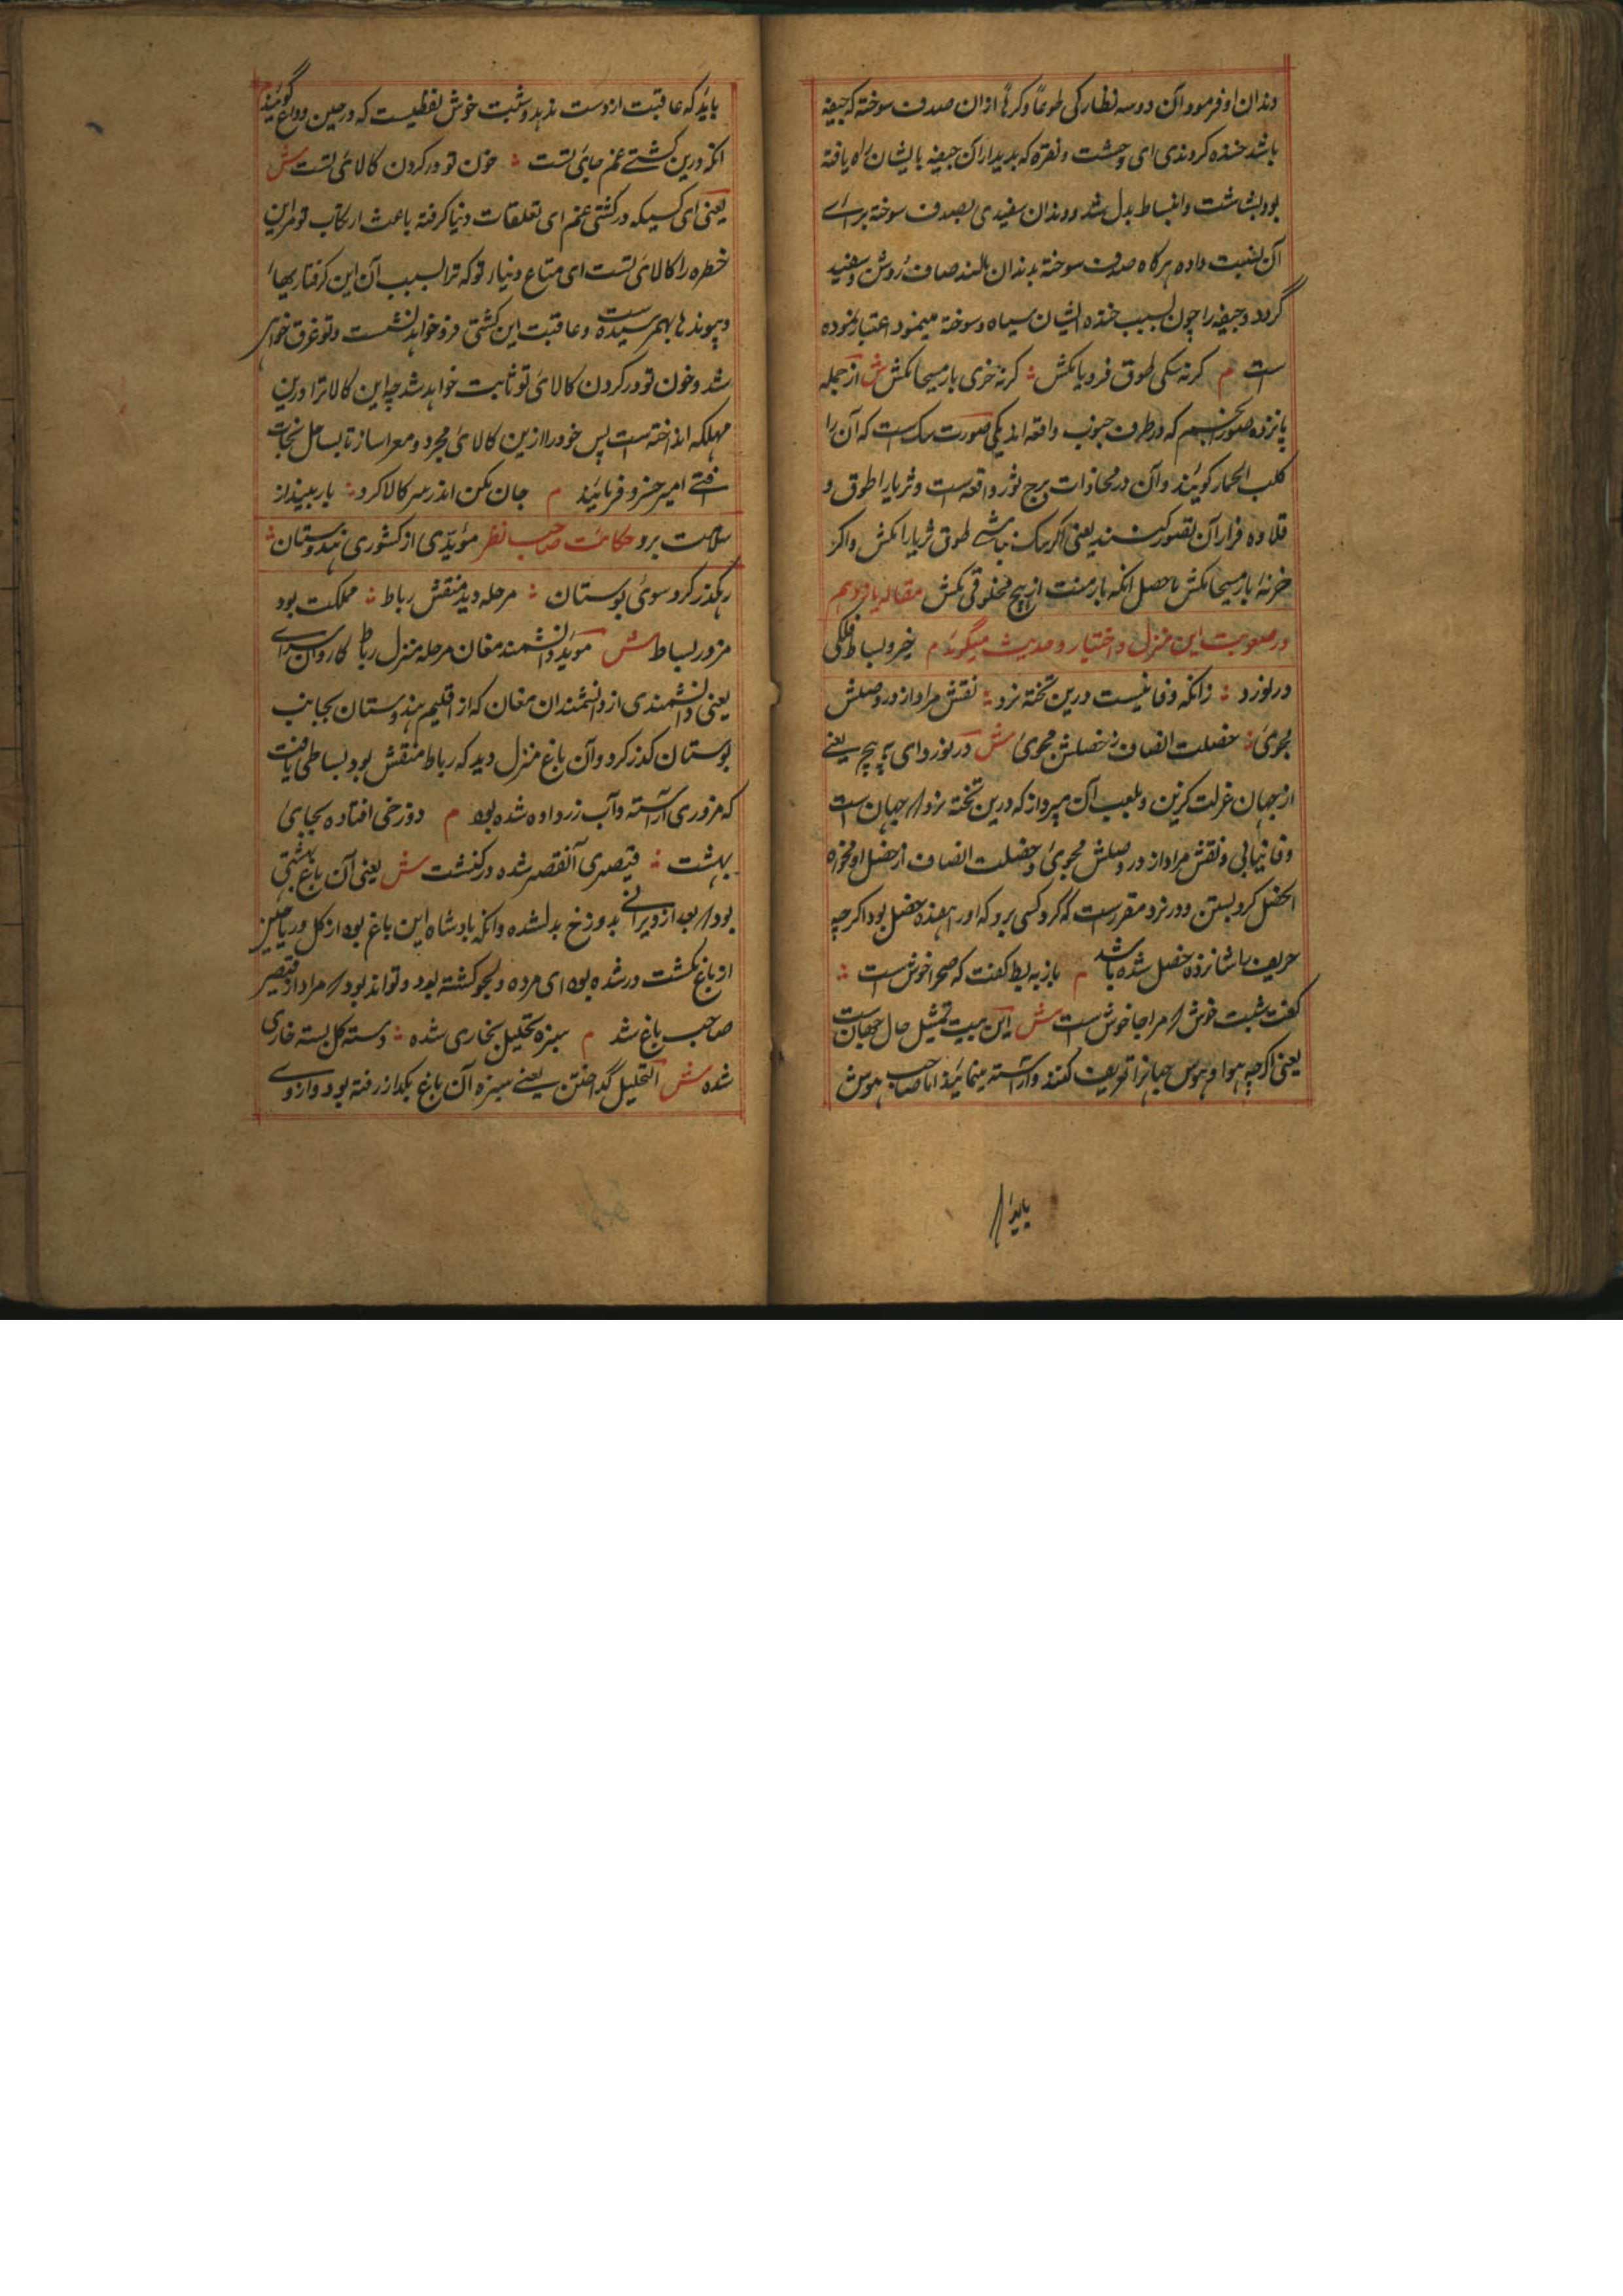 دندان او فرمود آن دو سه نظارکی طوعاً وکرهاً ازان صدف سوخته که جیفه
باشد خنده کردندی ای وحشت و نفرة که بدیدار آن جیفه بایشان راه یافته
بود ببشاشت و انبساط بدل شد و دندان سفیدی بصدف سوخته برای
آن نسبت داده هرکاه صدف سوخته بدندان مالند صاف و روشن و سفید
کردد و جیفه را چون بسبب خنده ایشان سیاه و سوخته مینمود اعتبار نموده
است م کرنه سکی طوق ثریا مکش کرنه خری بار مسیحا مکش ش از جمله
پانزده صور انجم که در طرف جنوب واقعه اند یکی صورت سک است که آن را
کلب الحمار کویند و آن در محاذات برج ثور واقعه است و ثریا را طوق و
قلاده قرار آن تصور کنند یعنی اکر سک نباشی طوق ثریا را مکش و اکر
خر نهٔ بار مسیحا مکش حاصل انکه بار منت از هیچ مخلوقی مکش مقاله یازدهم
در صعوبت این منزل و اختیار و حدیث میکوید م خیز و بساط فلکی
در نورد زانکه وفا نیست درین تخته نرد نقش مراد از در وصلش
مجوی خصلت انصاف ز خصلش مجوی ش در نورد ای ته پیچ یعنے
از جهان عزلت کزین و بلعب آن مپرداز که درین تخته نرد که جهان است
وفا نیابی و نقش مراد از در وصلش مجوی و خصلت انصاف از خصل او مخواه
الخصل کرو بستن و در نرد مقرر است که کرو کسی برد که اورا هفده خصل بود اکرچه
حریف را شانزده خصل شده باشد م باز به بط کفت که صحرا خوش است
کفت شبت خوش که مرا جا خوش است ش این بیت تمثیل حال جهان است
یعنی اکرچه هوا و هوس جهانرا تعریف کنند و آراسته مینمایند اما صاحب هوش
باید که
باید که عاقبت از دست ندهد و شبت خوش لفظیست که در حین وداع کویند
انکه درین کشتے غم جای تست خون تو در کردن کالای تست ش
یعنی ای کسیکه در کشتی غم ای تعلقات دنیا کرفته باعث ارتکاب تو مر این
خطره را کالای تست ای متاع دنیاء تو که ترا بسبب آن این کرفتاریها
و پیوندها بهم رسیده است و عاقبت این کشتی فرو خواهد نشست و تو غرق خواهی
شد و خون تو در کردن کالای تو ثابت خواهد شد چه این کالا ترا درین
مهلکه انداخته است پس خود را ازین کالای مجرد و معرا ساز تا بساحل نجات
افتے امیر خسرو فرمایند م جان مکن اندر سر کالا کرو بار بینداز
سلامت برو حکایت صاحب نظر موبدی از کشوری هندوستان
رهکذر کرد سوی بوستان مرحله دید منقش رباط مملکت بود
مزور بساط ش موبد دانشمند مغان مرحله منزل رباط کاروان سرای
یعنی دانشمندی از دانشمندان مغان که از اقلیم هندوستان بجانب
بوستان کذر کرد و آن باغ منزل دید که رباط منقش بود بساطی یافت
که مزوری آراسته و آب زر داده شده بود م دوزخی افتاده بجای
بهشت قیصری آن قصر شده در کنشت ش یعنی آن باغ بهشتی
بود که بعد از ویرانی بدوزخ بدل شده و انکه بادشاه این باغ بود از کل و ریاحین
از باغ کنشت در شده بود ای مرده و محو کشته بود و تواند بود که مراد از قیصر
صاحب باغ شد م سبزه تحلیل بخاری شده دسته کل بسته خاری
شده ش التحلیل کداختن یعنے سبزه آن باغ بکداز رفته بود و ازوی